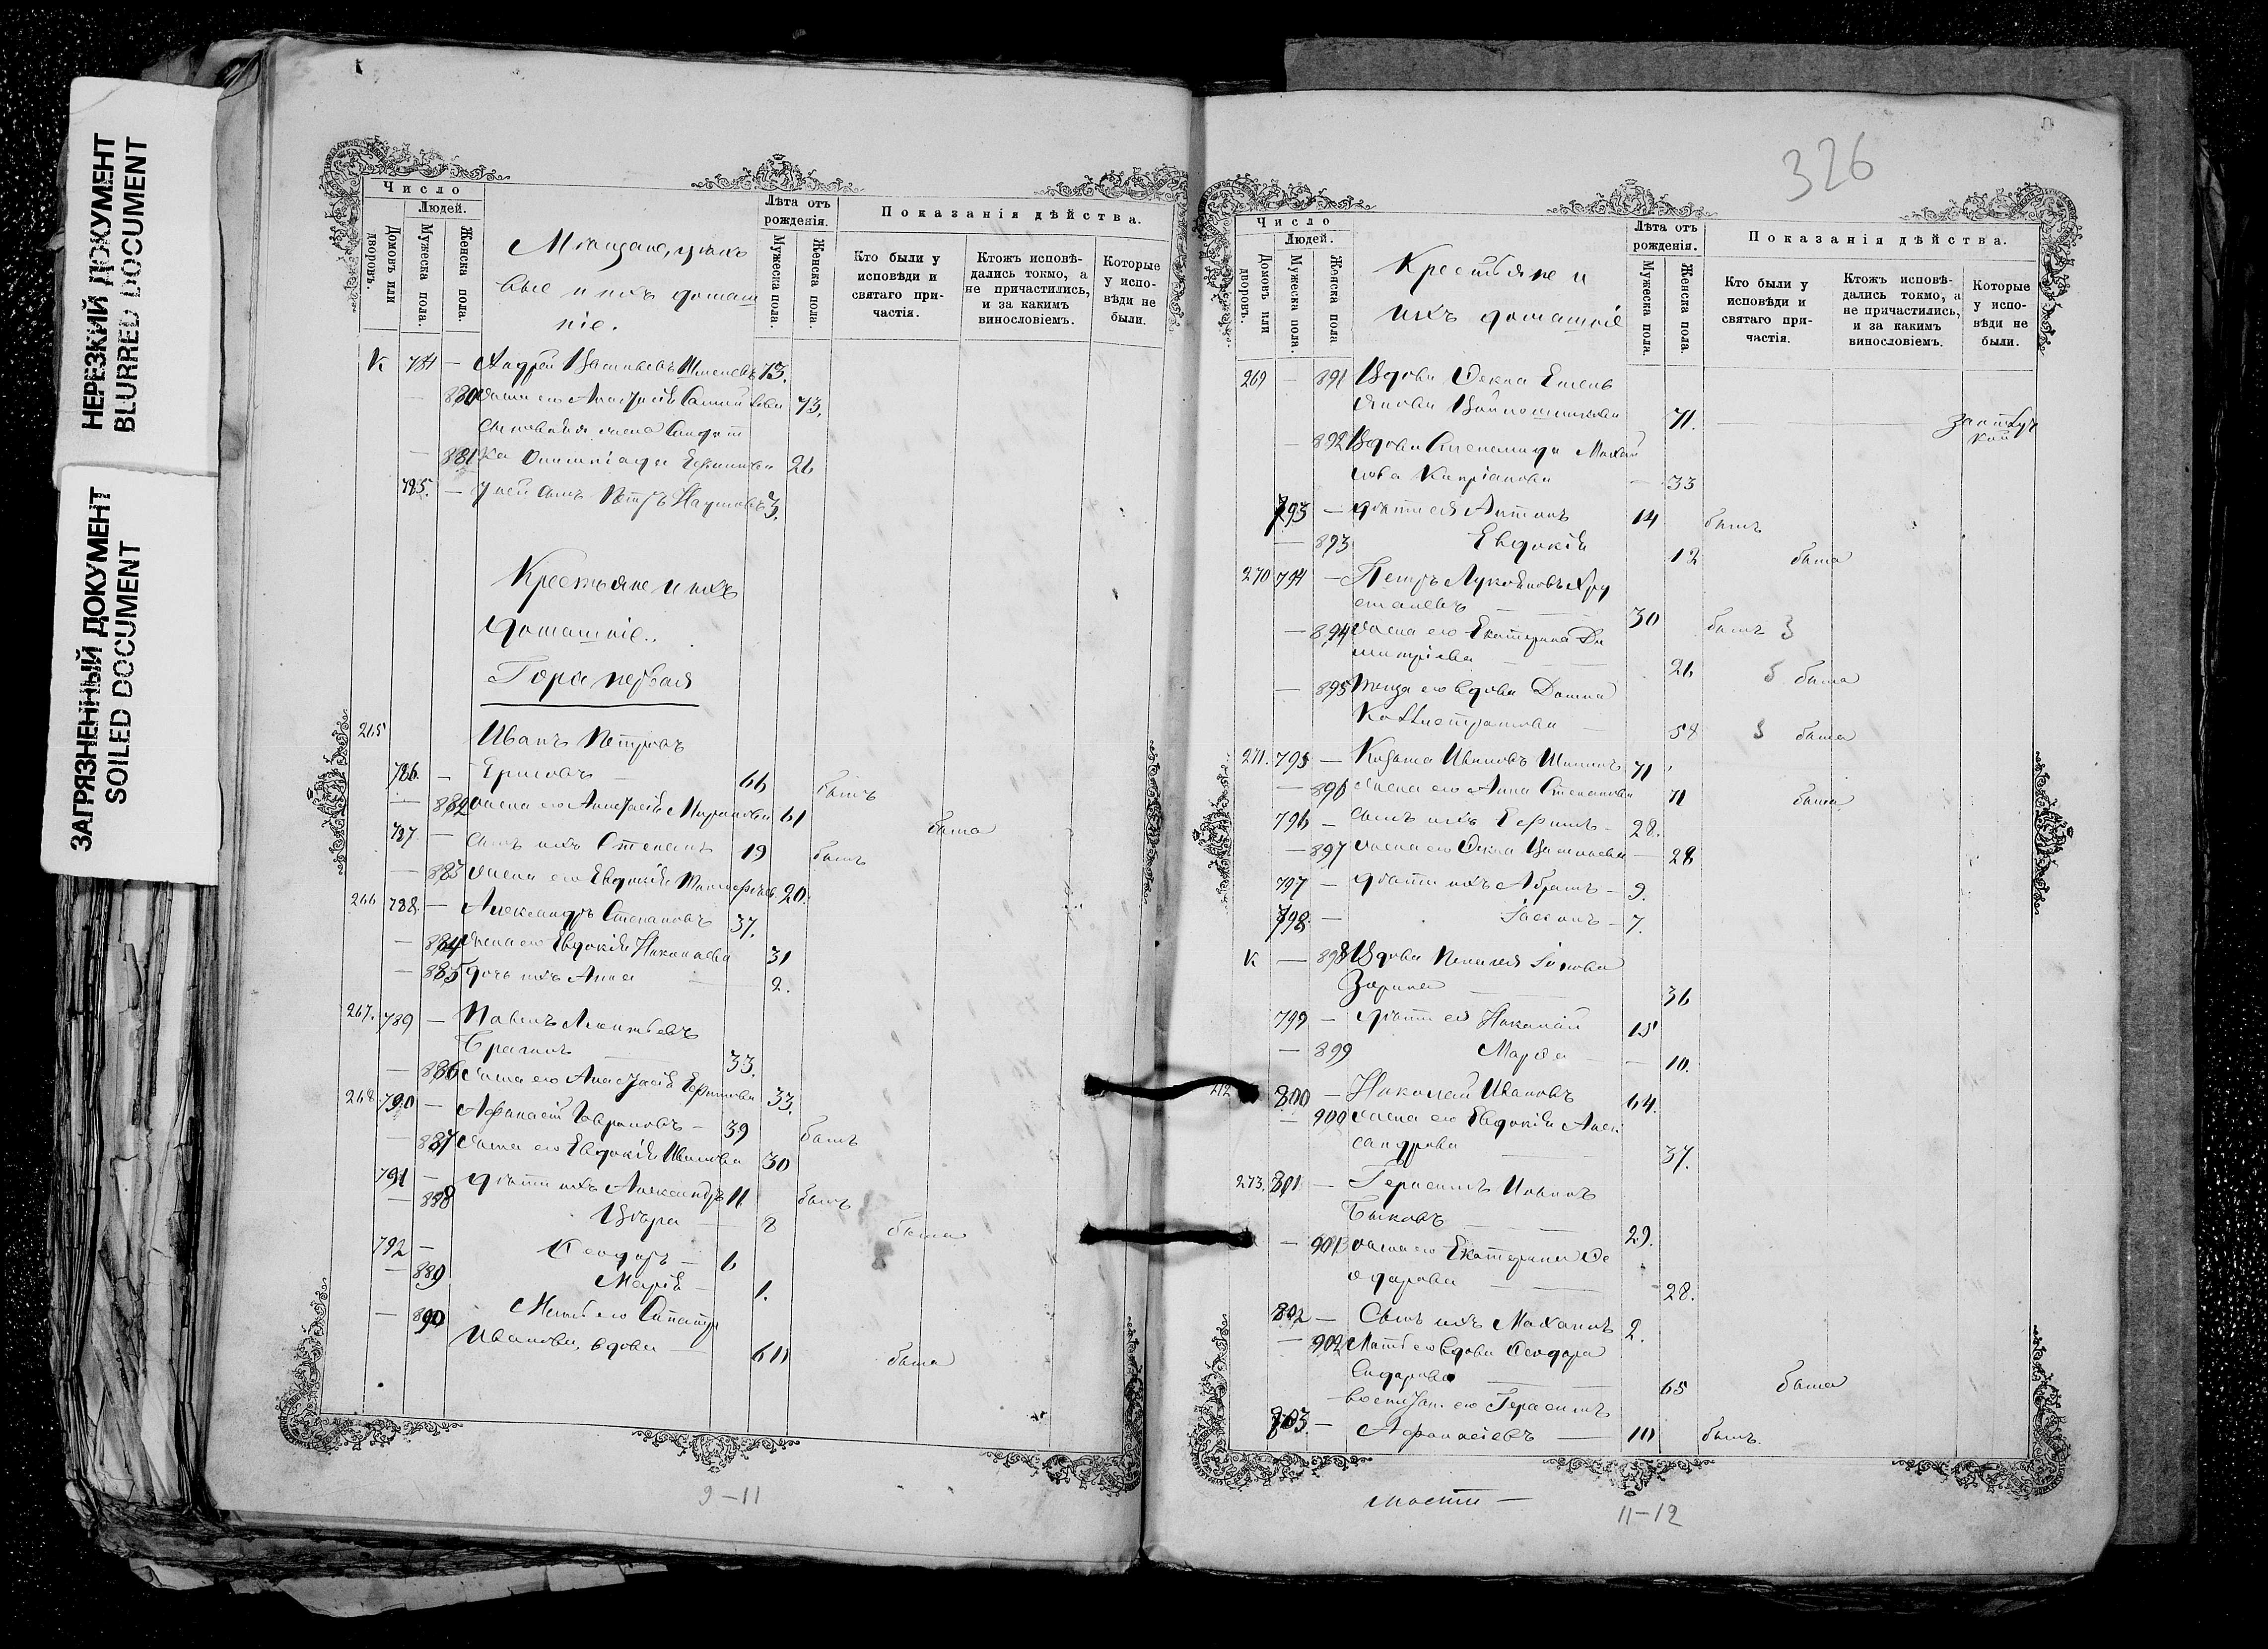 НЕРЕЗКИЙ ДОКУМЕНТ
BLURRED DOCUMENT
ЗАГРЯЗНЕННЫЙ ДОКУМЕНТ
SOILED DOCUMENT
Число
Людей.
Домовъ или дворовъ.
Мужеска пола.
Женска пола.
Мѣщане, цѣхо
вые и ихъ домаш
ніе.
Лѣта отъ рожденія.
Мужеска пола.
Женска пола.
Показанія дѣйства.
Кто были у исповѣди и святаго при- частія.
Ктожъ исповѣ- дались токмо, а не причастились, и за какимъ винословіемъ.
Которые у испо- вѣди не были.
К 784 — Андрей Васильевъ 73.
— 880 жена его Анастасія 73.
— 881 Олимпіада 26
785. — у ней сынъ Петръ Наумовъ 3.
Крестьяне и ихъ
домашніе.
Гора первая
265 Иванъ Петровъ
786. — Ершовъ — 66 былъ
— 882 жена его Анастасія Миронова 61 была
787 — сынъ ихъ Степанъ 19 былъ
— 883 жена его Евдокія 20.
266 788. — Александръ Степановъ 37.
— 884 жена его Евдокія Николаева 31
— 885 дочь ихъ Анна — 2.
267. 789 — Павелъ Леонтьевъ
33.
— 886 жена его Анастасія Ефимова 33.
268 790 — Афанасій Гавриловъ — 39 былъ
— 887 жена его Евдокія Иванова 30
791 — дѣти ихъ Александръ 11 былъ
— 888 Вѣра — 8 была
792 — Ѳеодоръ — 6
— 889 Марія — 1.
— 890 Мать его
Иванова, вдова — 60 была
9-11
326
Число
Людей.
Домовъ или дворовъ.
Мужеска пола.
Женска пола
Крестьяне и
ихъ домашніе
Лѣта отъ рожденія.
Мужеска пола.
Женска пола.
Показанія дѣйства.
Кто были у исповѣди и святаго при- частія.
Ктожъ исповѣ- дались токмо, а не причастились, и за какимъ винословіемъ.
Которые у испо- вѣди не были.
269 — 891 Вдова Ѳекла Емель
янова 71.
— 892 Вдова Степанида Михай
лова Кипріанова — 33
793 — дѣти ея Антонъ 14 былъ
— 893 Евдокія 12 была
270 794 — Петръ Лукояновъ Хру
сталевъ 30 былъ
— 894 жена его Екатерина Ди
митріева 26 была
— 895 вдова Дарья
Каллистратова — 54 была
271. 795 — Козьма Ивановъ 71
— 896 жена его Анна Степанова 71 была
796 — сынъ ихъ Ефимъ — 28.
— 897 жена его Ѳекла Васильева — 28
797 — дѣти ихъ Абрамъ — 9.
798. — Іасонъ — 7.
К — 898 Вдова Пелагея
Зорина 36
799 — дѣти ея Николай 15
— 899 Марѳа — 10.
272 800 — Николай Ивановъ 64.
— 900 жена его Евдокія Алек
сандрова 37.
273. 801 — Герасимъ Ивановъ
Быковъ 29.
— 901 жена его Екатерина Ѳе
одорова 28.
802 — Сынъ ихъ Михаилъ 2.
— 902 Мать его вдова Ѳеодора
Сидорова 65 была
воспит. его Герасимъ
803. — Афанасіевъ — 10 былъ.
11-12